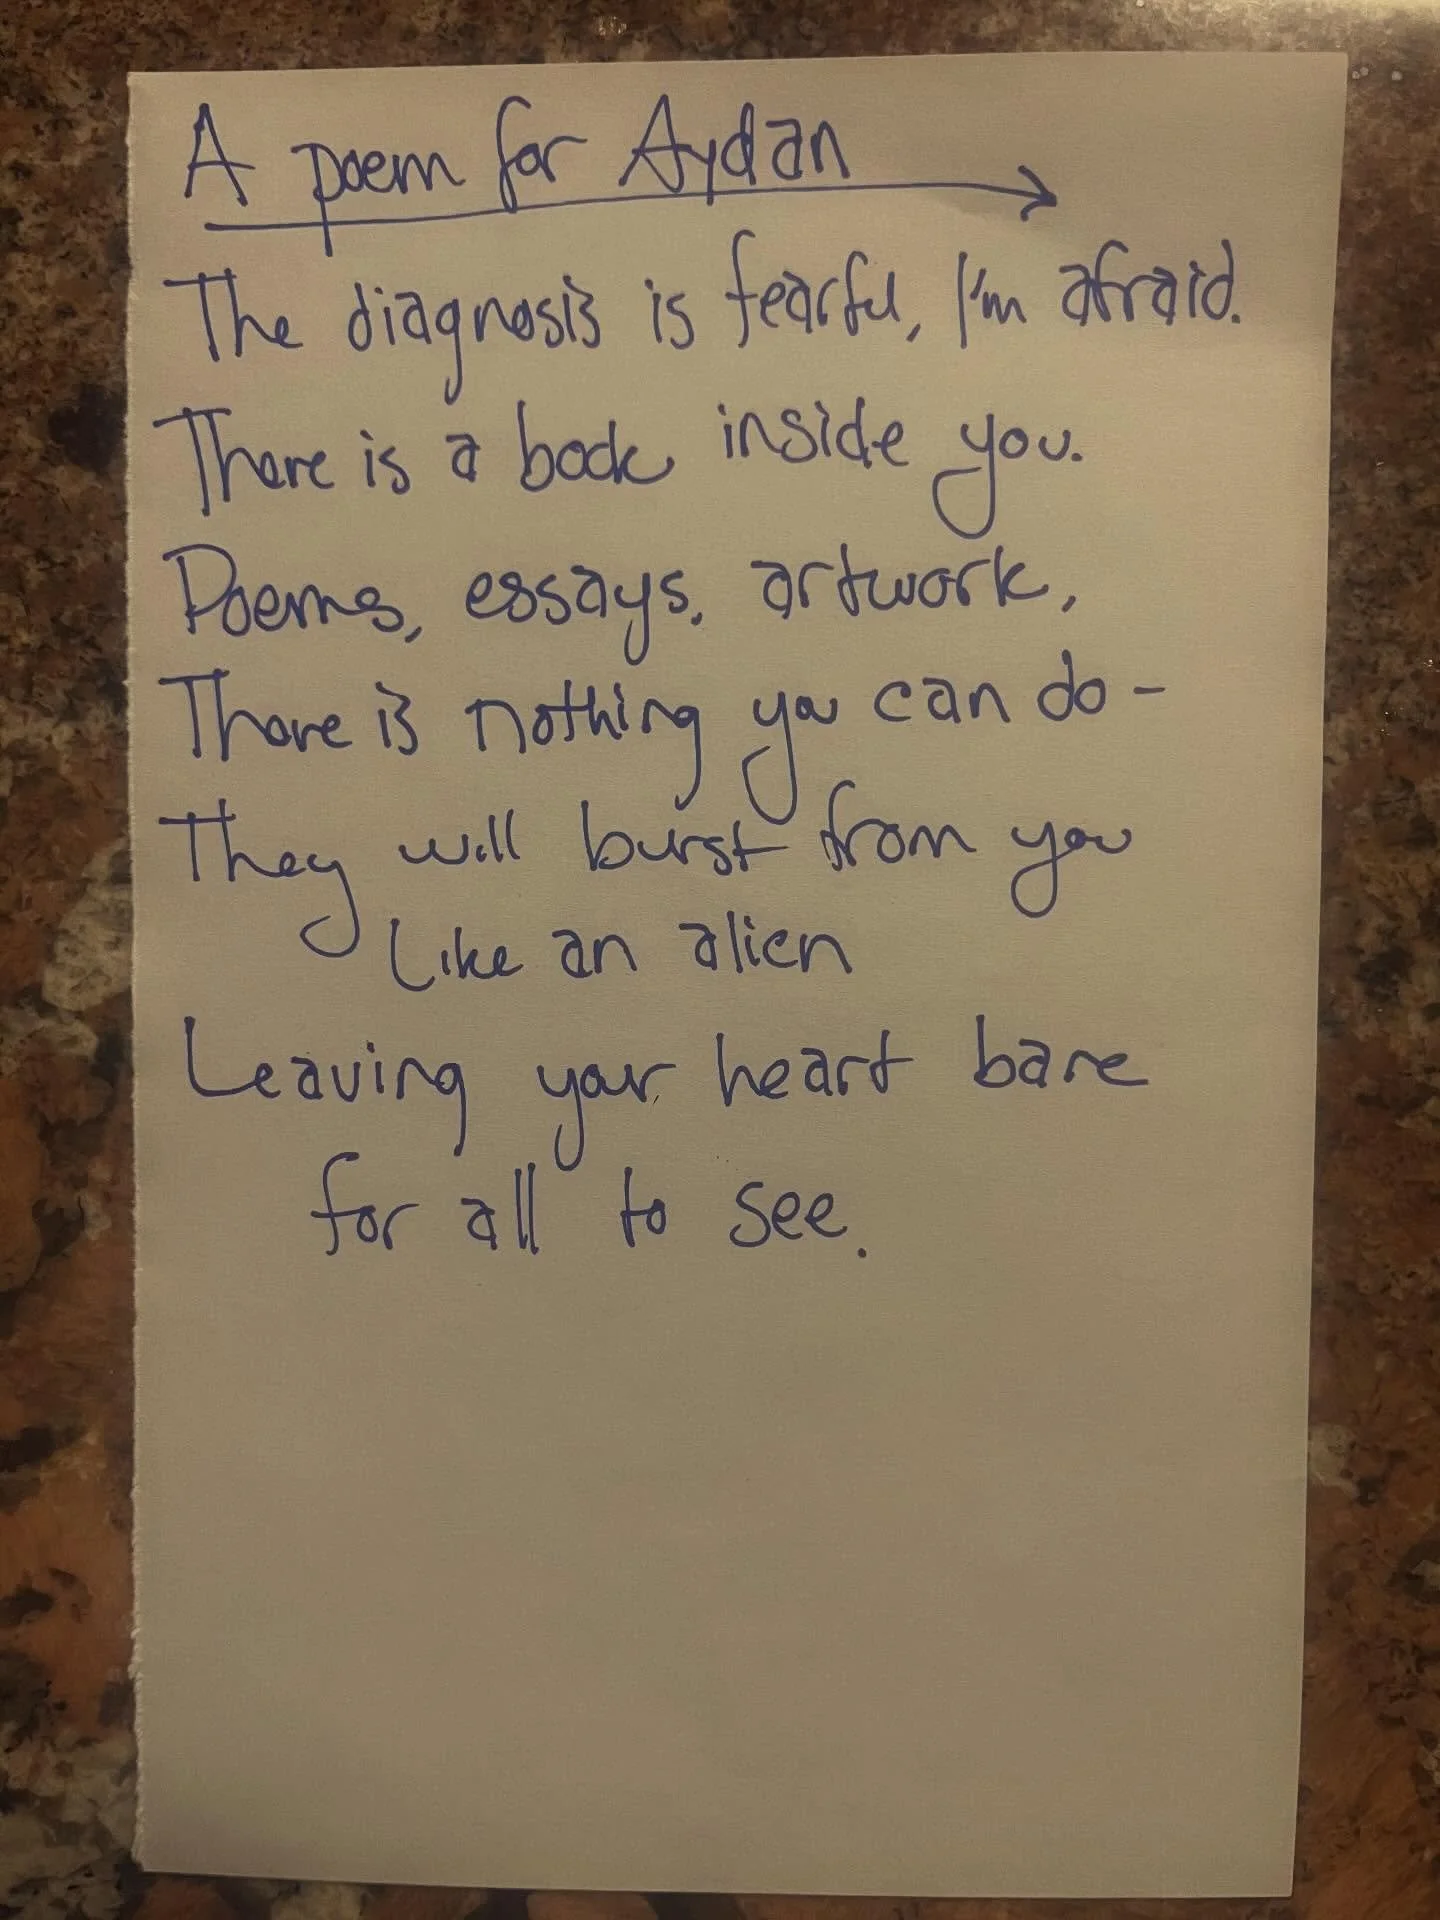 A poem for Aydan
The diagnosis is fearful, I'm afraid.
There is a book inside you.
Poems, essays, artwork,
There is nothing you can do -
They will burst from you
Like an alien
Leaving your heart bare
for all to see.